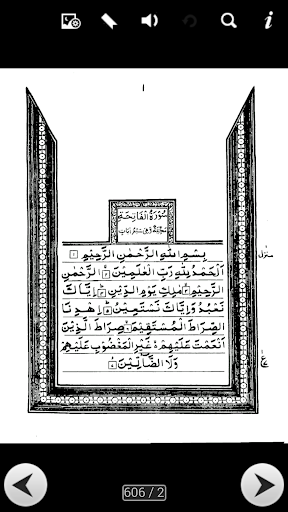 ١
سُوْرَةُ الْفَاتِحَةِ
بِسْمِ اللّٰهِ الرَّحْمٰنِ الرَّحِيْمِ ١
اَلْحَمْدُ لِلّٰهِ رَبِّ الْعٰلَمِيْنَ ٢ الرَّحْمٰنِ
الرَّحِيْمِ ٣ مٰلِكِ يَوْمِ الدِّيْنِ ٤ اِيَّاكَ
نَعْبُدُ وَاِيَّاكَ نَسْتَعِيْنُ ٥ اِهْدِنَا
الصِّرَاطَ الْمُسْتَقِيْمَ ٦ صِرَاطَ الَّذِيْنَ
اَنْعَمْتَ عَلَيْهِمْ ٧ غَيْرِ الْمَغْضُوْبِ عَلَيْهِمْ
وَلَا الضَّآلِّيْنَ
606 / 2